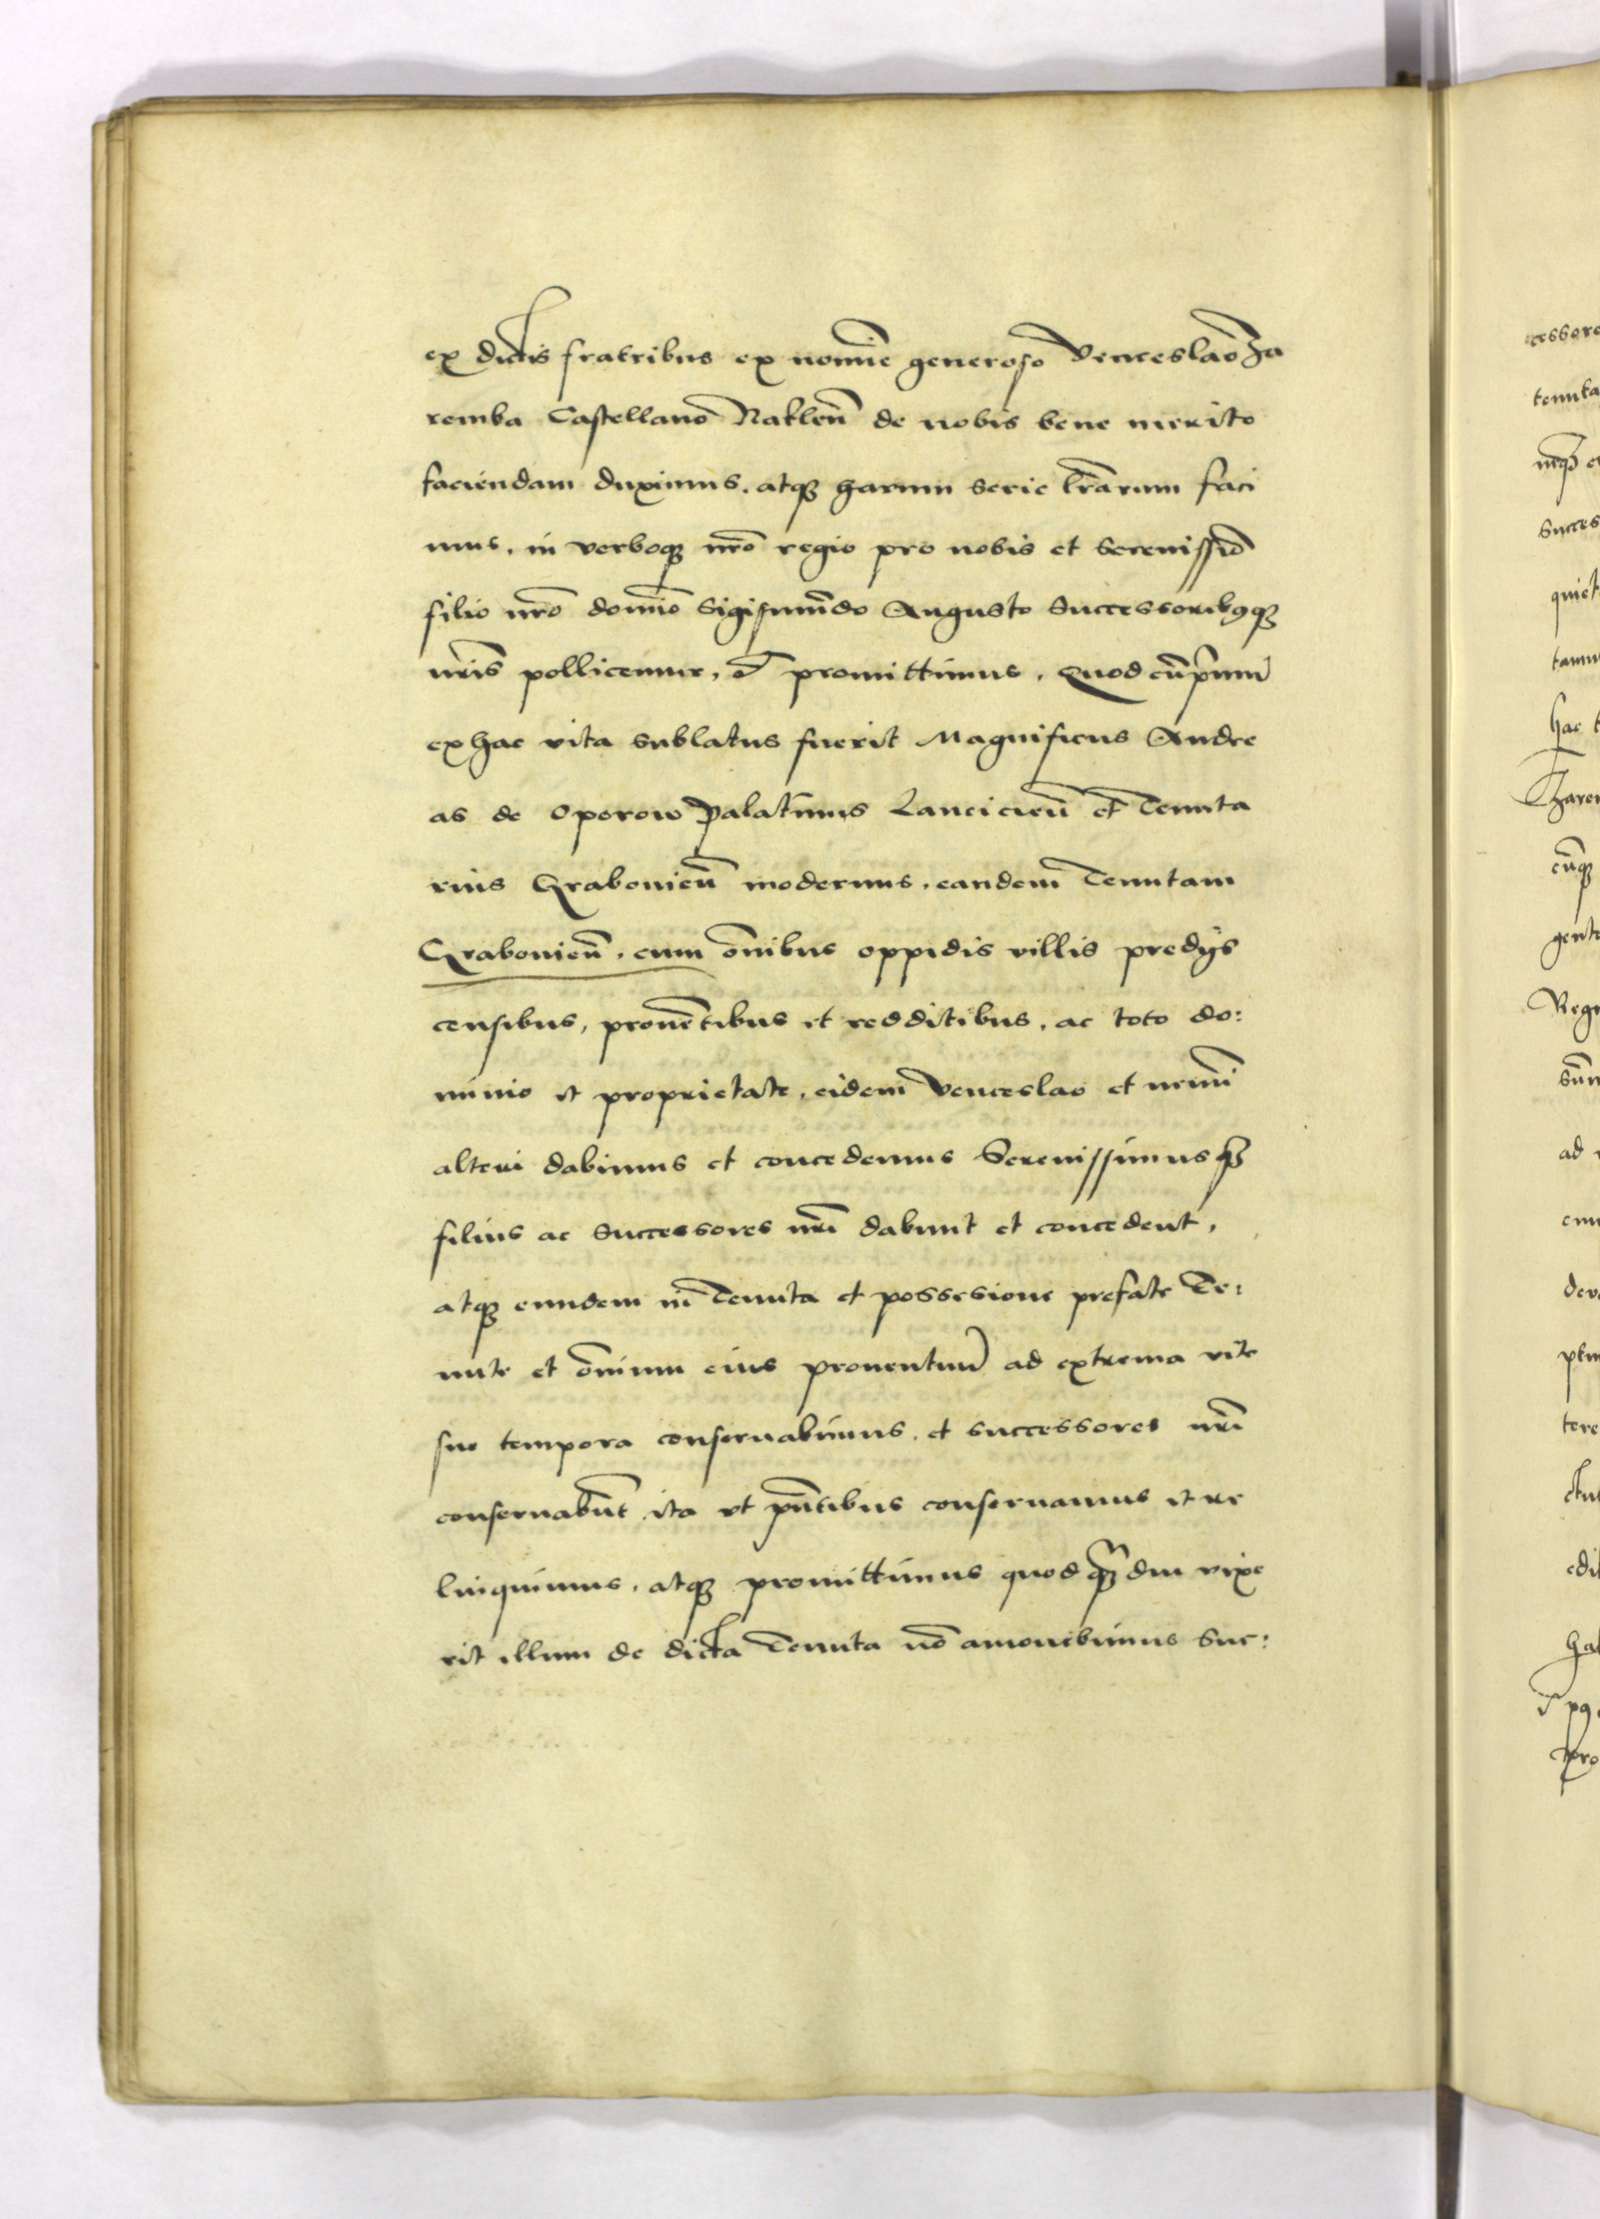 ex dictis fratribus ex nomīe generoso Venceslao Za
remba Castellano Naklen̄ de nobis bene merito
faciendam duximus. atq₃ harum serie lr̄arum faci
mus, in verboq₃ nr̄o regio pro nobis et serenissīo
filio nr̄o domīo Sigismūdo Augusto Successorib9q₃
nr̄is pollicemur, et promittimus, Quod cūprimū
ex hac vita sublatus fuerit Magnificus Andre
as de Oporow Palatinus Lancicien̄ et Tenuta
rius Grabouien̄ modernus, eandem Tenutam
Grabouien̄, cum om̄ibus oppidis villis predijs
censibus, prouētibus et redditibus, ac toto do:
minio et proprietate, eidem Venceslao et nemīi
alteri dabimus et concedemus Serenissimusq₃
filius ac Successores nr̄i dabunt et concedent,
atq₃ eundem in Tenuta et possesione prefate Te:
nute et om̄ium eius prouentuū ad extrema vite
sue tempora conseruabimus, et successores nr̄i
conseruabūt, ita vt pn̄tibus conseruamus et re
linquimus, atq₃ promittimus quod q̄₃diu vixe
rit illum de dicta Tenuta nō amouebimus Suc:
cessore
tenuta
neq₃
Succes
quiet
hac
Zarem
cūq₃
gente
Regn
ad
tere